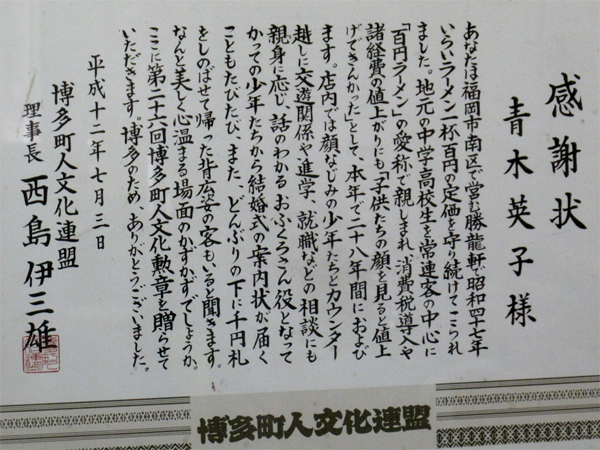 感謝状
青木英子様
あなたは福岡市南区で営む勝龍軒で昭和四十七年
いらいラーメン一杯百円の定価を守り続けてこられ
ました。地元の中学高校生を常連客の中心に
「百円ラーメン」の愛称で親しまれ、消費税導入や
諸経費の値上がりにも「子供たちの顔を見ると値上
げできんかった」として、本年で二十八年間におよび
ます。店内では顔なじみの少年たちとカウンター
越しに交遊関係や進学、就職などの相談にも
親身に応じ、話のわかるおふくろさん役となって
かっての少年たちから結婚式の案内状が届く
こともたびたび、また、どんぶりの下に千円札
をしのばせて帰った背広姿の客もいると聞きます。
なんと美しく心温まる場面のかずかずでしょうか。
ここに第二十六回博多町人文化勲章を贈らせて
いただきます。博多のため、ありがとうございました。
平成十二年七月三日
博多町人文化連盟
理事長 西島伊三雄
博多町人文化連盟